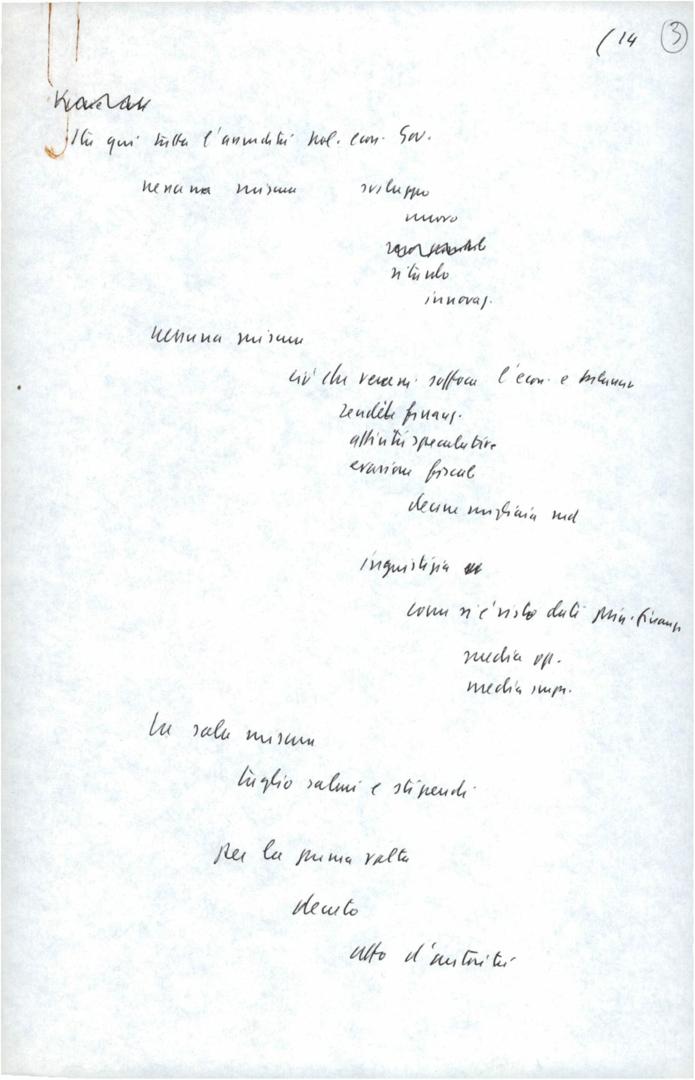 (14 3
Sta qui tutta l'assurdità pol. econ. Gov.
nessuna misura sviluppo
nuovo
rilancio
innovaz.
nessuna misura
ciò che veram. soffoca l'econ. e bilancio
rendite finanz.
attività speculative
evasione fiscale
decine migliaia md
ingiustizia
come si è visto dati Min. Finanze
media op.
media impr.
La sola misura
taglio salari e stipendi
per la prima volta
decreto
atto d'autorità